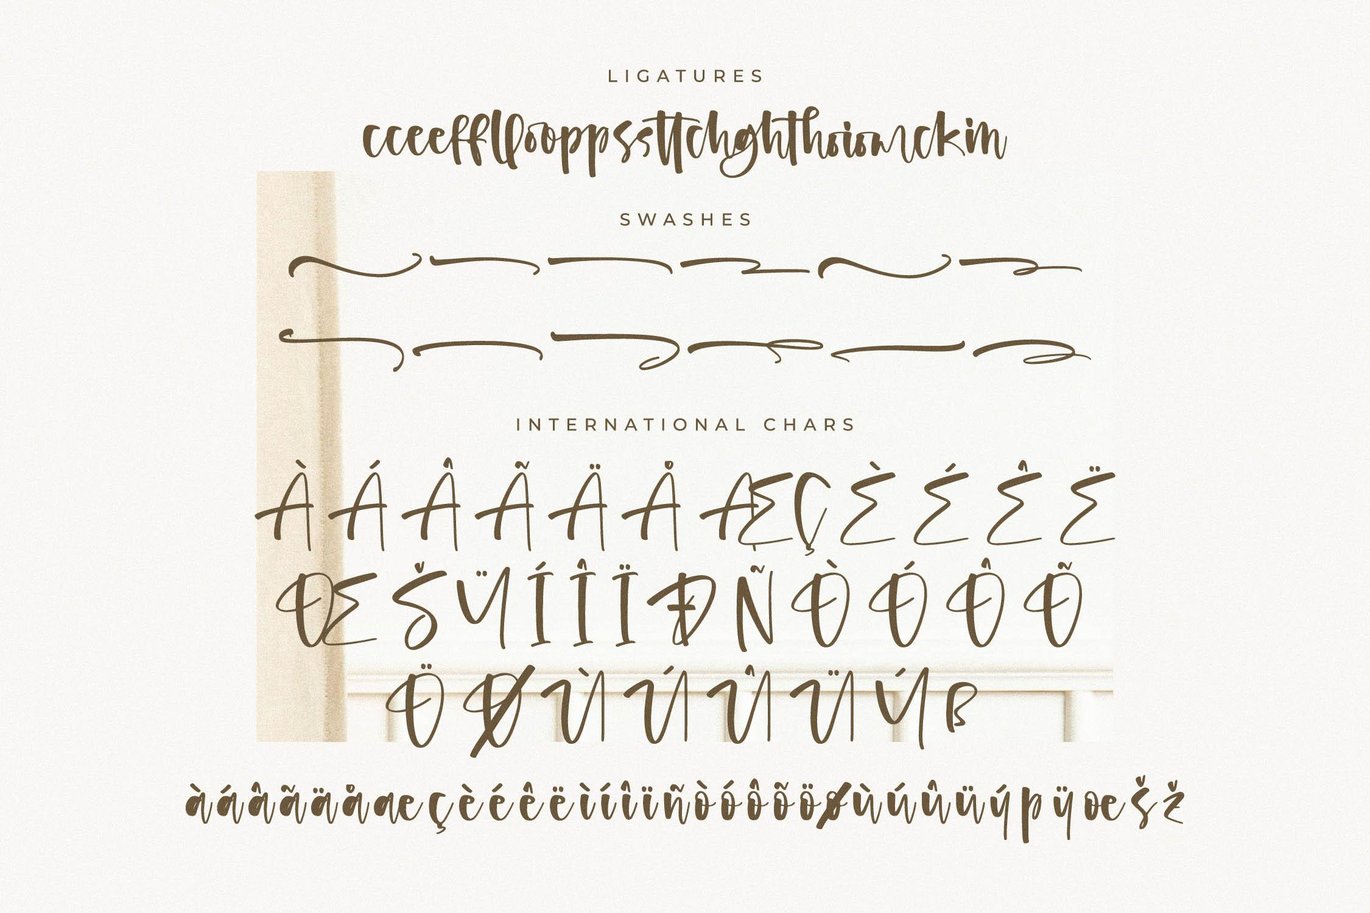 LIGATURES
cceefflloopPssttchghthoiomckin
SWASHES
INTERNATIONAL CHARS
ÀÁÂÃÄÅÆÇÈÉÊË
ŒŠŸÍÎÏÐÑÒÓÔÕ
ÖØÙÚÛÜÝß
àáâãäåæçèéêëìíîïñòóôõöøùúûüýþÿœšž